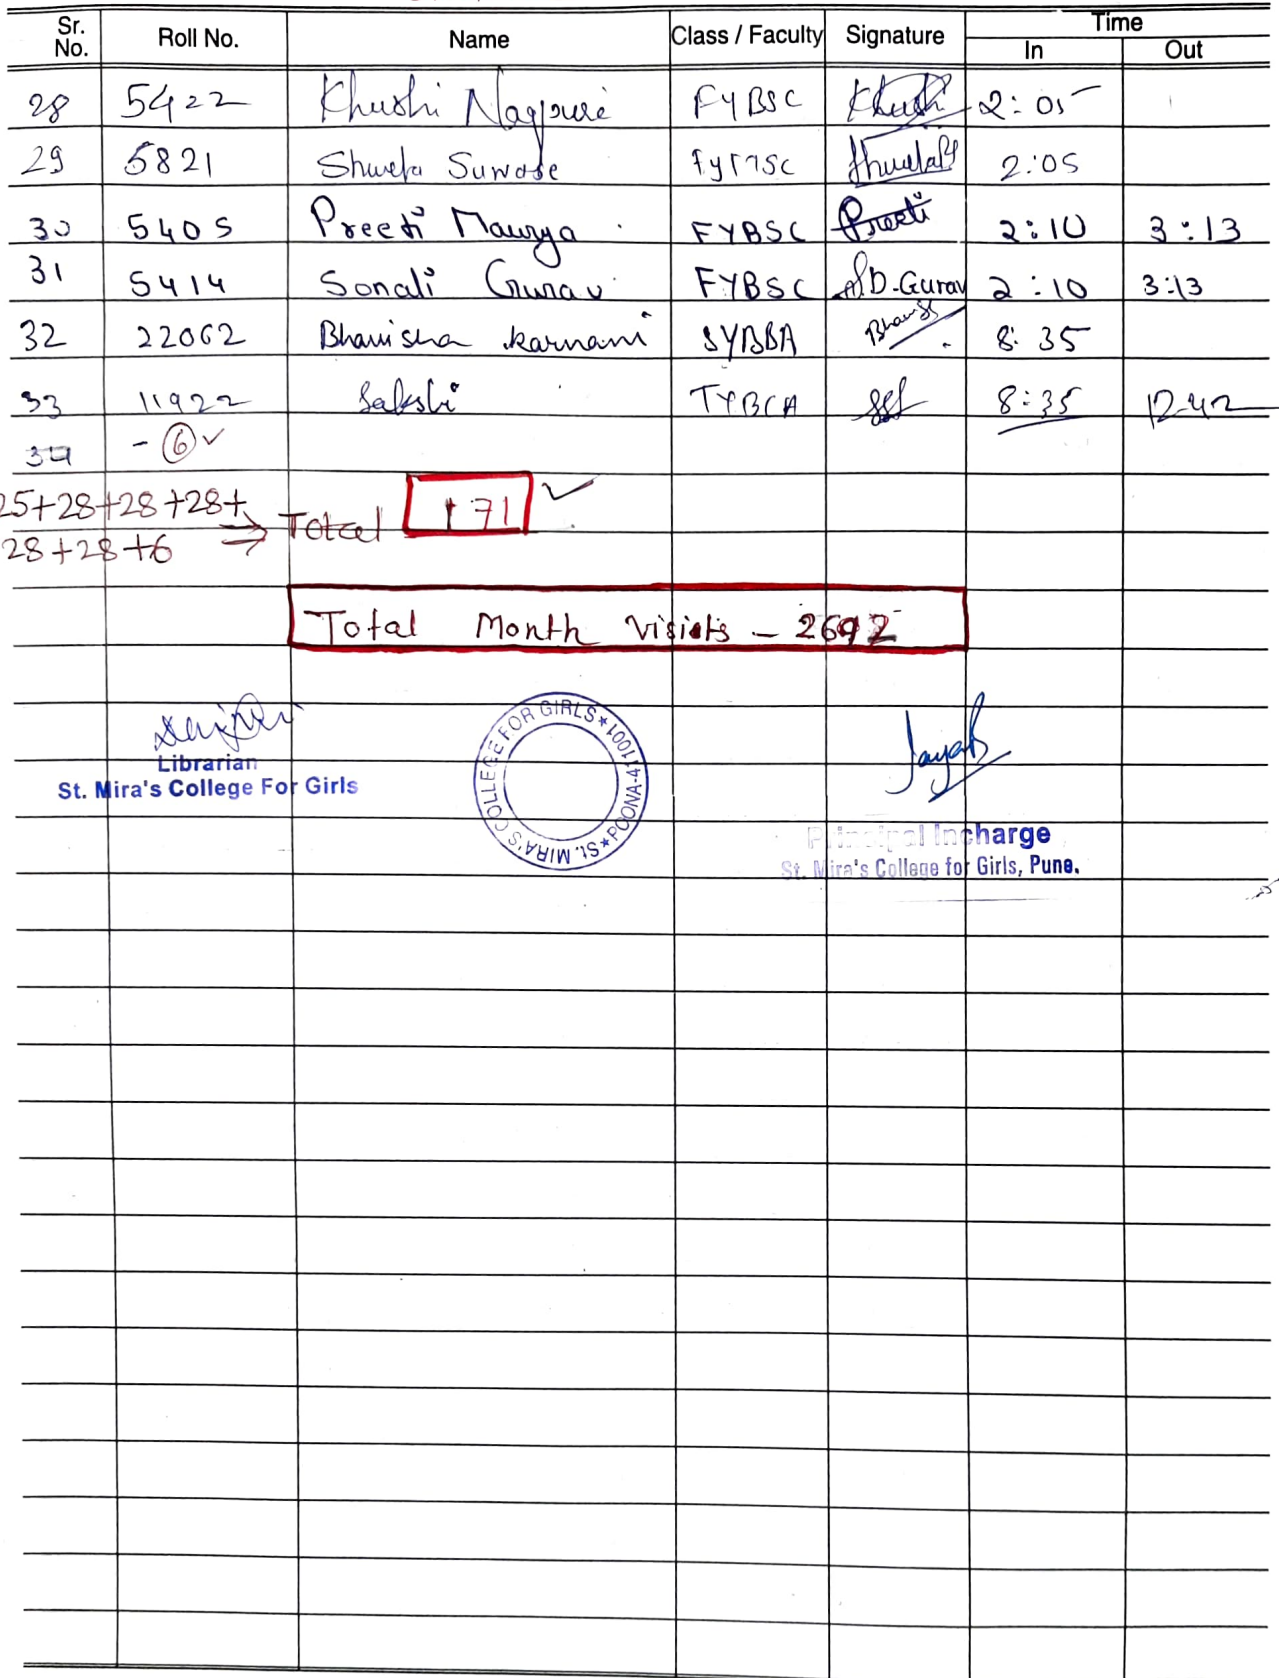 Sr. No. Roll No. Name Class / Faculty Signature Time
In Out
28 5422 Khushi Nagpure FYBSC Khushi 2:05
29 5821 Shweta Suwase FYBSC 2:05
30 5405 Preeti Maurya FYBSC Preeti 2:10 3:13
31 5414 Sonali Gurav FYBSC S.D.Gurav 2:10 3:13
32 22062 Bhavisha karnani SYBBA 8:35
33 11922 Sakshi TYBCA 8:35 12-42
34 - 6 ✓
25+28+28+28+
28+28+6 ⇒ Total 171 ✓
Total Month Visiets - 2692
Librarian
St. Mira's College For Girls
ST. MIRA'S COLLEGE FOR GIRLS * POONA-411001 *
Principal Incharge
St. Mira's College for Girls, Pune.